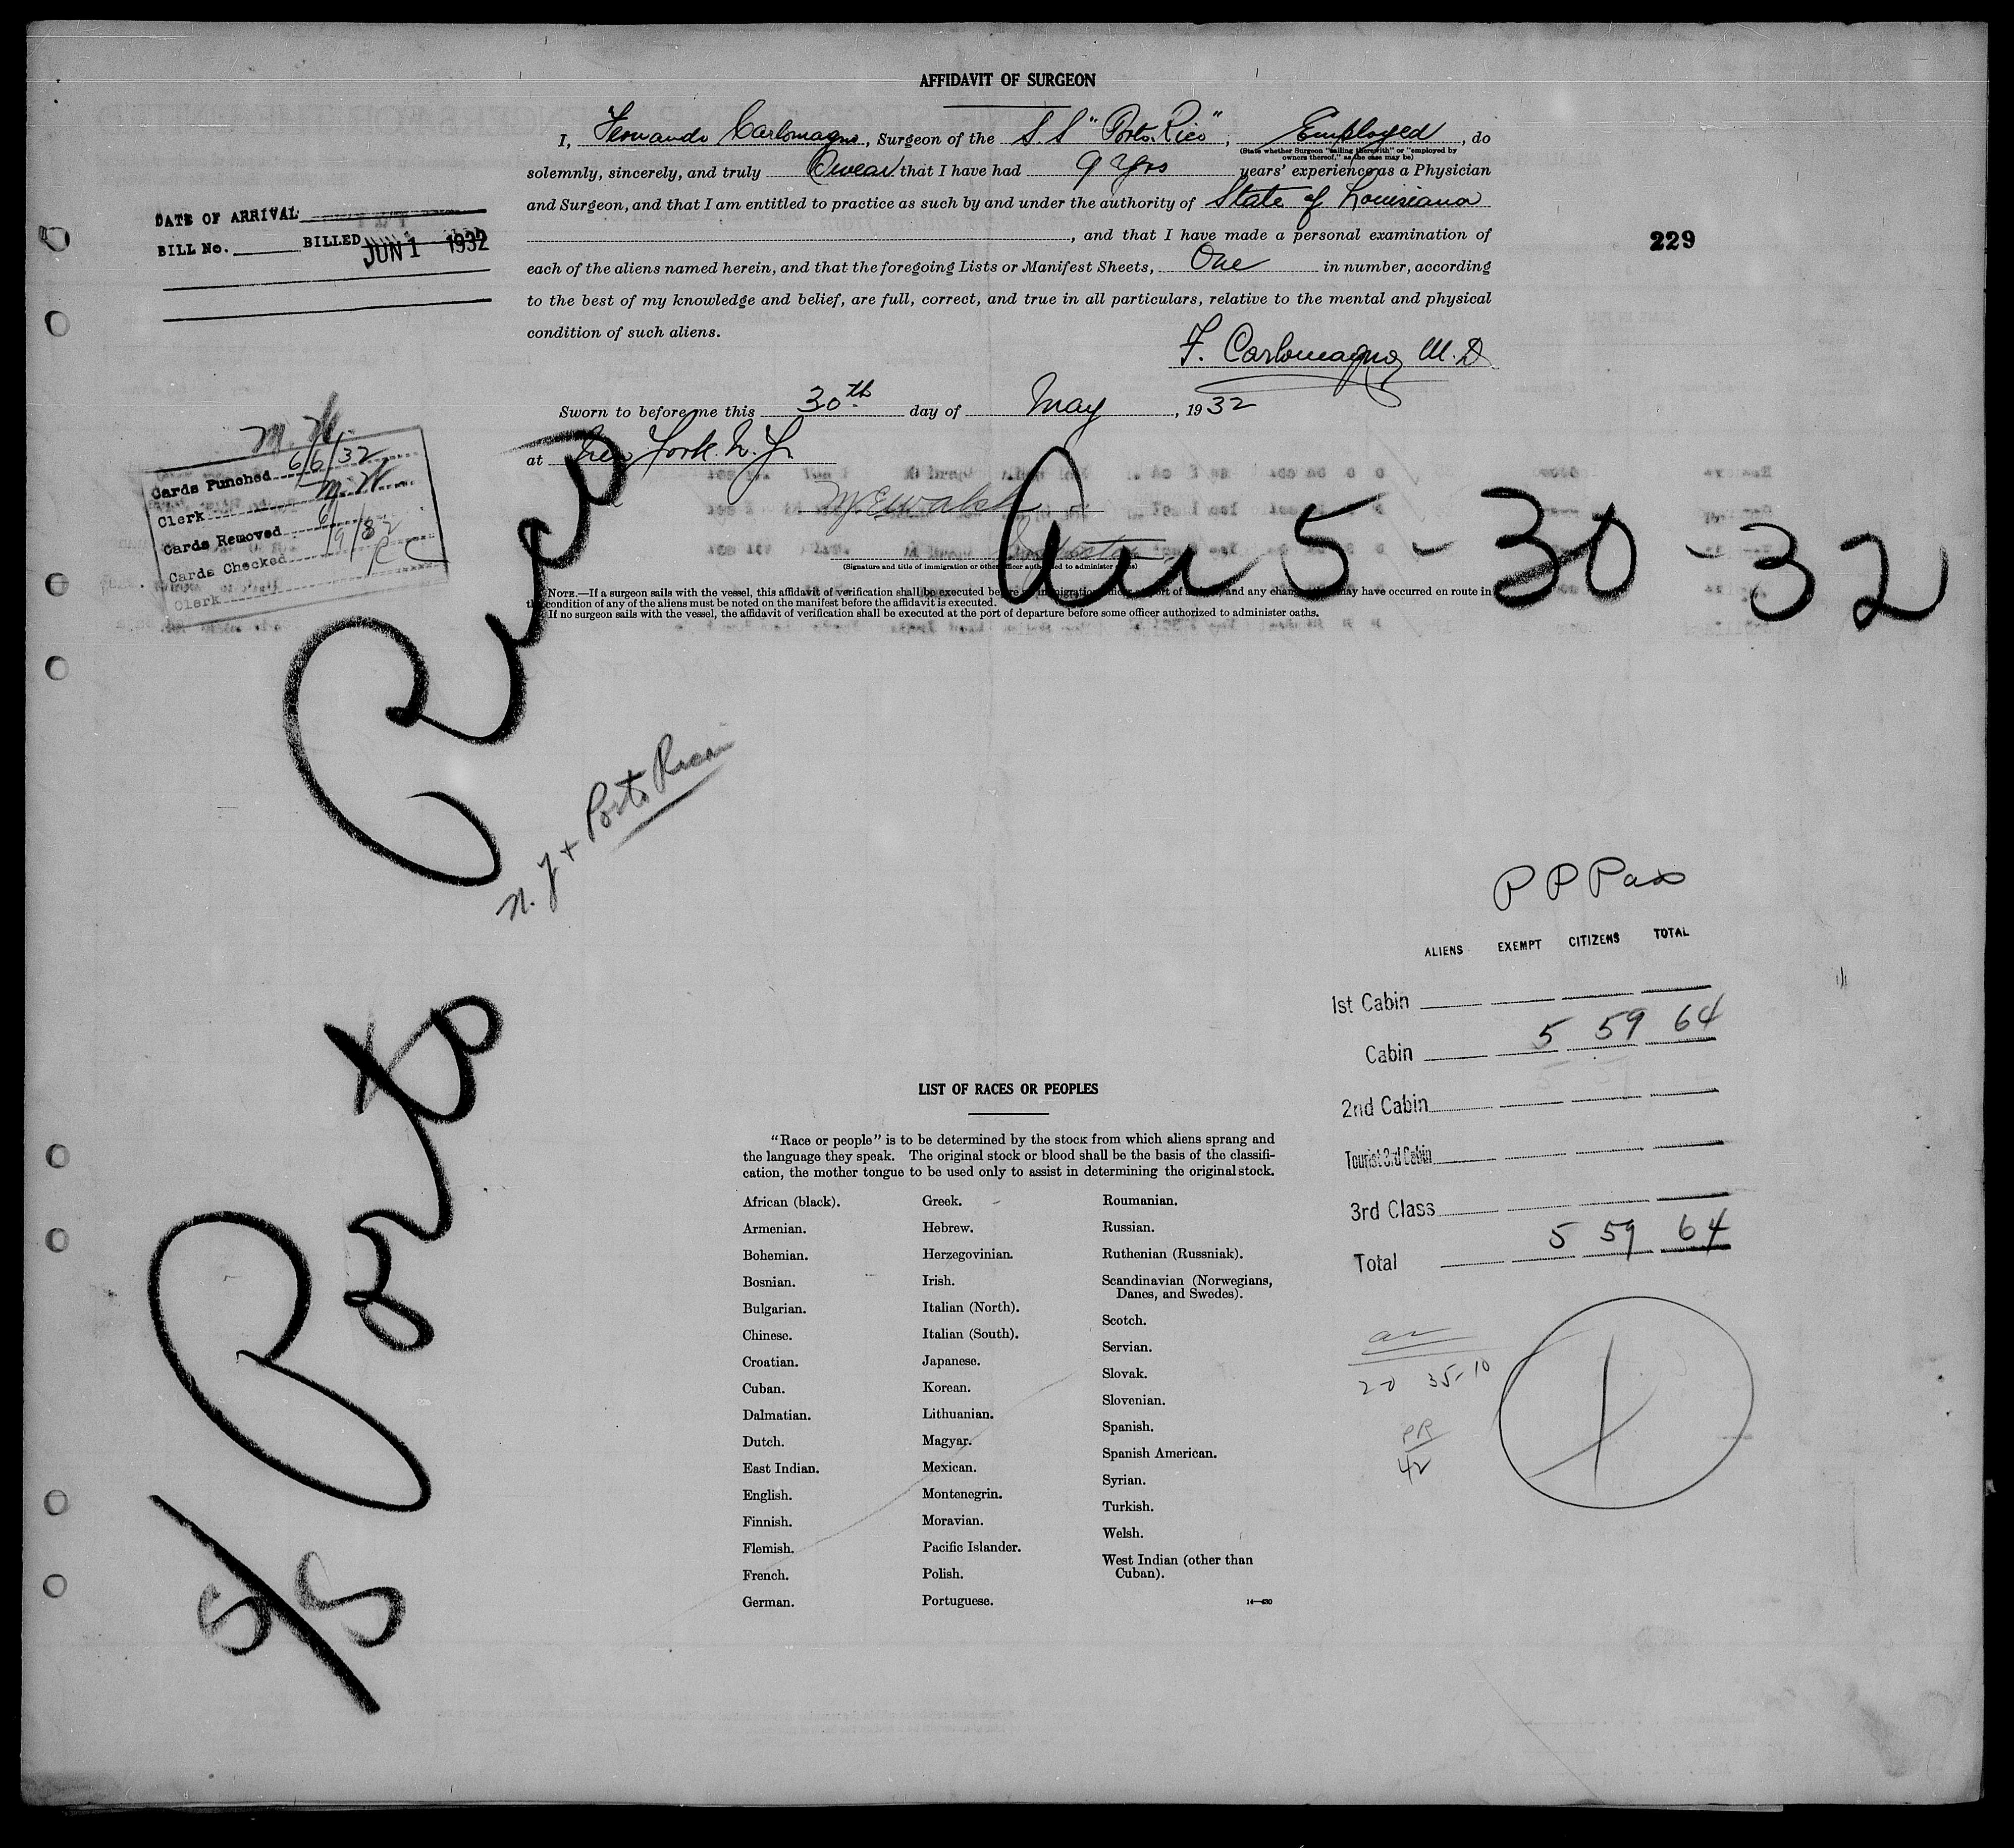 AFFIDAVIT OF SURGEON
I, Fernando Carlomagno, Surgeon of the S.S "Porto Rico", Employed, do
(State whether Surgeon "sailing therewith" or "employed by
owners thereof," as the case may be)
solemnly, sincerely, and truly Swear that I have had 9 Yrs years' experience as a Physician
and Surgeon, and that I am entitled to practice as such by and under the authority of State of Louisiana
, and that I have made a personal examination of
each of the aliens named herein, and that the foregoing Lists or Manifest Sheets, One in number, according
to the best of my knowledge and belief, are full, correct, and true in all particulars, relative to the mental and physical
condition of such aliens.
F. Carlomagno M.D.
Sworn to before me this 30th day of May, 1932
at New York. N.Y.
M E Walsh
(Signature and title of immigration or other officer authorized to administer oaths)
NOTE.—If a surgeon sails with the vessel, this affidavit of verification shall be executed before an immigration officer at port of and any changes may have occurred en route in
the condition of any of the aliens must be noted on the manifest before the affidavit is executed.
If no surgeon sails with the vessel, the affidavit of verification shall be executed at the port of departure before some officer authorized to administer oaths.
DATE OF ARRIVAL
BILL No. BILLED JUN 1 1932
229
M. W.
Cards Punched 6/6/32
Clerk M. W.
Cards Removed
Cards Checked 6/9/32
Clerk R C
Arr 5-30-32
S/S Porto Rico
N.Y + Porto Rican
P P Pass
ALIENS EXEMPT CITIZENS TOTAL
1st Cabin
Cabin 5 59 64
2nd Cabin
Tourist 3rd Cabin
3rd Class
Total 5 59 64
20 35-10
PR
42
LIST OF RACES OR PEOPLES
"Race or people" is to be determined by the stock from which aliens sprang and
the language they speak. The original stock or blood shall be the basis of the classifi-
cation, the mother tongue to be used only to assist in determining the original stock.
African (black).
Armenian.
Bohemian.
Bosnian.
Bulgarian.
Chinese.
Croatian.
Cuban.
Dalmatian.
Dutch.
East Indian.
English.
Finnish.
Flemish.
French.
German.
Greek.
Hebrew.
Herzegovinian.
Irish.
Italian (North).
Italian (South).
Japanese.
Korean.
Lithuanian.
Magyar.
Mexican.
Montenegrin.
Moravian.
Pacific Islander.
Polish.
Portuguese.
Roumanian.
Russian.
Ruthenian (Russniak).
Scandinavian (Norwegians,
Danes, and Swedes).
Scotch.
Servian.
Slovak.
Slovenian.
Spanish.
Spanish American.
Syrian.
Turkish.
Welsh.
West Indian (other than
Cuban).
14—430